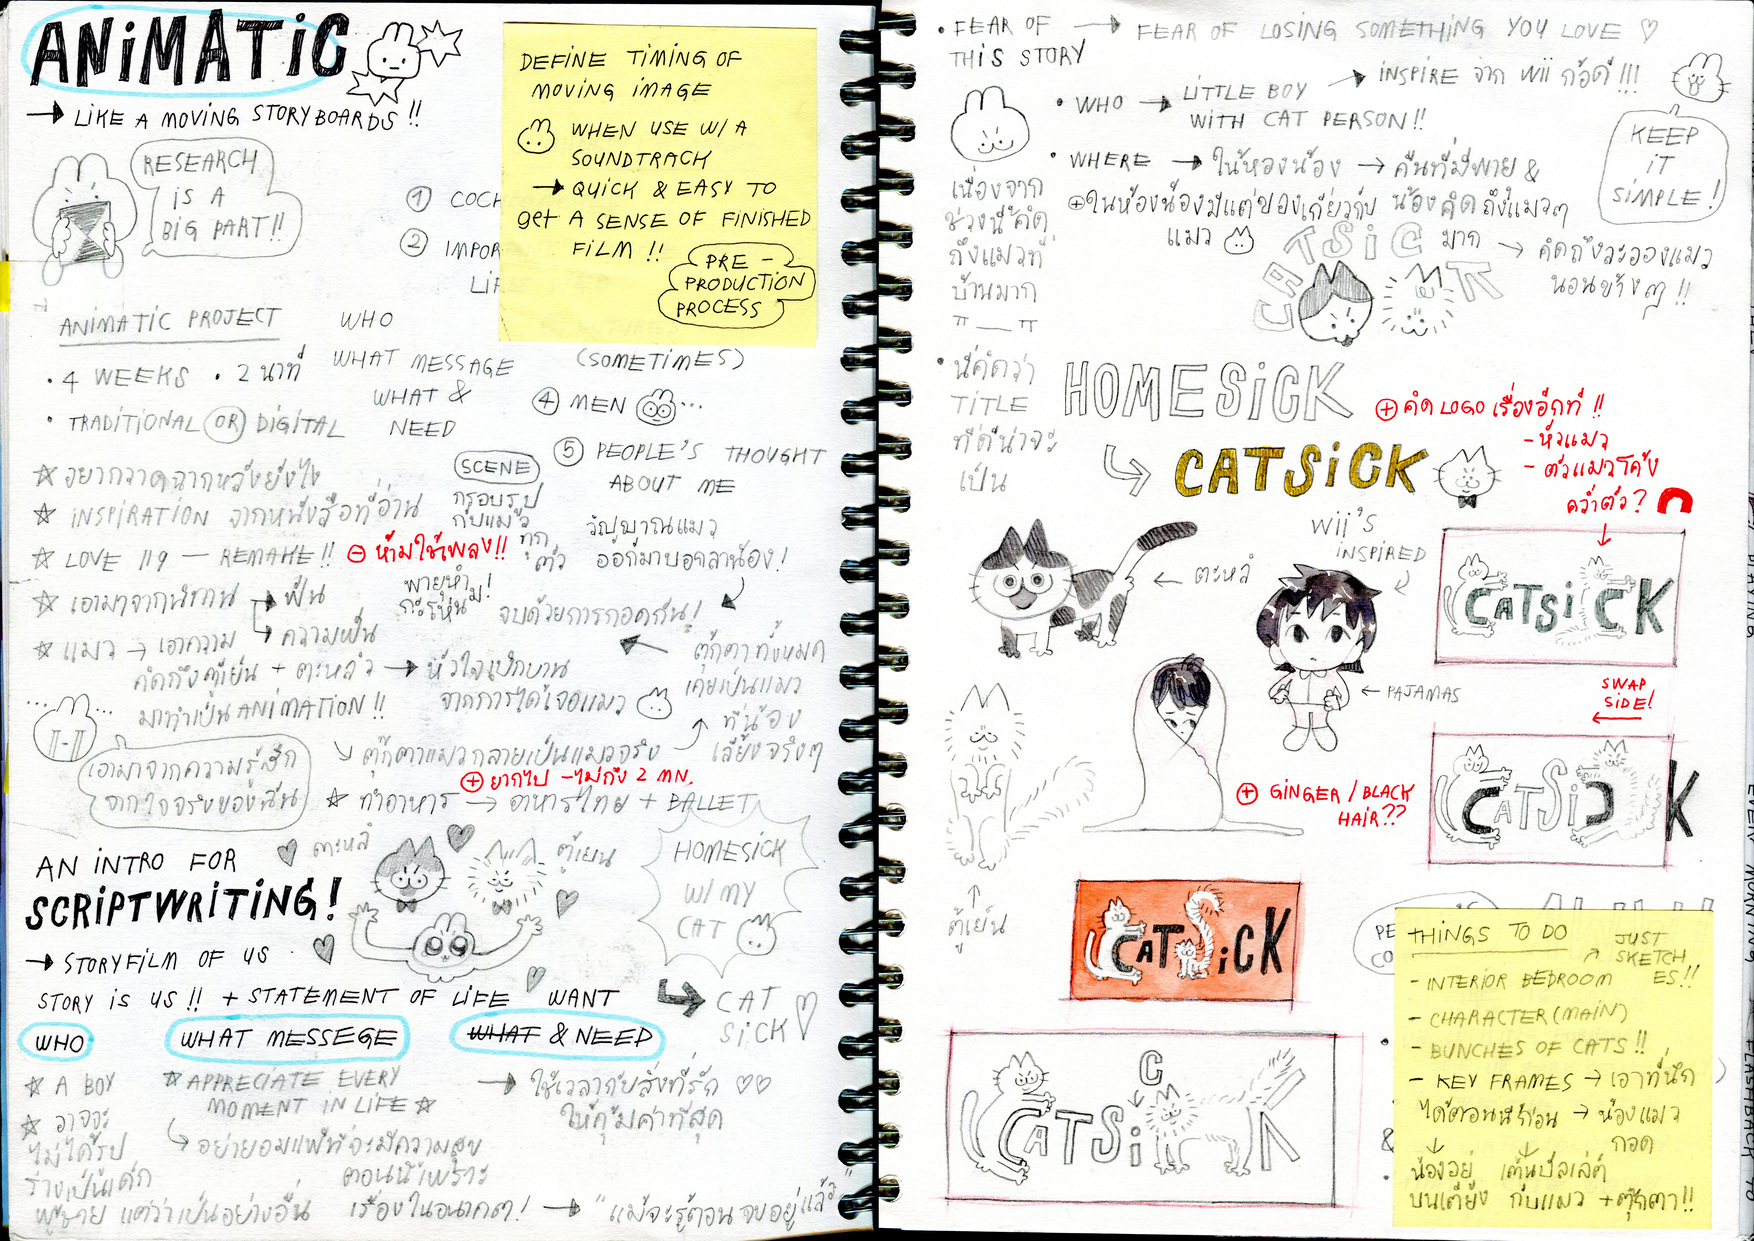 ANIMATIC
→ LIKE A MOVING STORYBOARDS !!
RESEARCH
IS A
BIG PART!!
① COCK
② IMPOR
LIF
DEFINE TIMING OF
MOVING IMAGE
WHEN USE W/ A
SOUNDTRACK
→ QUICK & EASY TO
get A SENSE OF FINISHED
FILM !!
PRE -
PRODUCTION
PROCESS
ANIMATIC PROJECT
• 4 WEEKS • 2 นาที
• TRADITIONAL OR DIGITAL
WHO
WHAT MESSAGE
WHAT &
NEED
(SOMETIMES)
④ MEN ...
⑤ PEOPLE'S THOUGHT
ABOUT ME
วิญญาณแมว
ออกมาบอกลาน้อง!
SCENE
กรอบรูป
กับแมว
ทุก
ตัว
☆ อยากวาดฉากหลังยังไง
☆ INSPIRATION จากหนังสือที่อ่าน
☆ LOVE 119 — REMAKE!! ⊖ ห้ามใช้เพลง!!
☆ เอามาจากนิทาน → ฝัน
→ ความฝัน
พายุหำ
กระโหน่ม!
จบด้วยการกอดกัน!
☆ แมว → เอาความ
คิดถึงตู้เย็น + ตะหลิว → หัวใจเบิกบาน
มาทำเป็น ANIMATION !! จากการได้เจอแมว
ตุ๊กตาทั้งหมด
เคยเป็นแมว
ที่น้อง
เลี้ยงจริงๆ
... π-π ...
เอามาจากความรู้สึก
จากใจจริงของฉัน
↘ ตุ๊กตาแมวกลายเป็นแมวจริง
⊕ ยากไป - ไม่ถึง 2 MN.
☆ ทำอาหาร → อาหารไทย + BALLET
AN INTRO FOR
SCRIPTWRITING!
ตะหลิว
ตู้เย็น
HOMESICK
W/ MY
CAT
→ STORYFILM OF US
STORY IS US !! + STATEMENT OF LIFE WANT
CAT
SICK
WHO
WHAT MESSEGE
WHAT & NEED
☆ A BOY
☆ อาจจะ
ไม่ได้รูป
ร่างเป็นเด็ก
ผู้ชาย แต่ว่าเป็นอย่างอื่น
☆ APPRECIATE EVERY
MOMENT IN LIFE ☆
อย่ายอมแพ้ที่จะมีความสุข
ตอนนี้ เพราะ
เรื่องในอนาคต! → "แม้จะรู้ตอนจบอยู่แล้ว"
→ ใช้เวลากับสิ่งที่รัก ♡♡
ให้คุ้มค่าที่สุด
• FEAR OF → FEAR OF LOSING SOMETHING YOU LOVE ♡
THIS STORY
• WHO → LITTLE BOY → INSPIRE จาก Wii ก้อดี !!!
WITH CAT PERSON!!
KEEP
IT
SIMPLE!
• WHERE → ในห้องน้อง → คืนที่มีพายุ &
⊕ ในห้องน้องมีแต่ของเกี่ยวกับ น้องคิดถึงแมวๆ
แมว
มาก → คิดถึงละอองแมว
นอนข้างๆ !!
CATSICK
เนื่องจาก
ช่วงนี้คิด
ถึงแมวที่
บ้านมาก
π — π
• นี่คิดว่า
TITLE
ที่ดีน่าจะ
เป็น
HOMESICK
CATSICK
⊕ คิด LOGO เรื่องอีกที !!
- หัวแมว
- ตัวแมวโค้ง
คว่ำตัว?
← ตะหลิว
Wii'S
INSPIRED
← PAJAMAS
CATSICK
SWAP
SIDE!
CATSICK
⊕ GINGER / BLACK
HAIR??
ตู้เย็น
CATSICK
C
CATSI K
THINGS TO DO
JUST
SKETCH
ES!!
- INTERIOR BEDROOM
- CHARACTER (MAIN)
- BUNCHES OF CATS !!
- KEY FRAMES → เอาที่นึก
ได้ตอนนี้ก่อน → น้องแมว
กอด
น้องอยู่ เต้นบัลเล่ต์
บนเตียง กับแมว + ตุ๊กตา!!